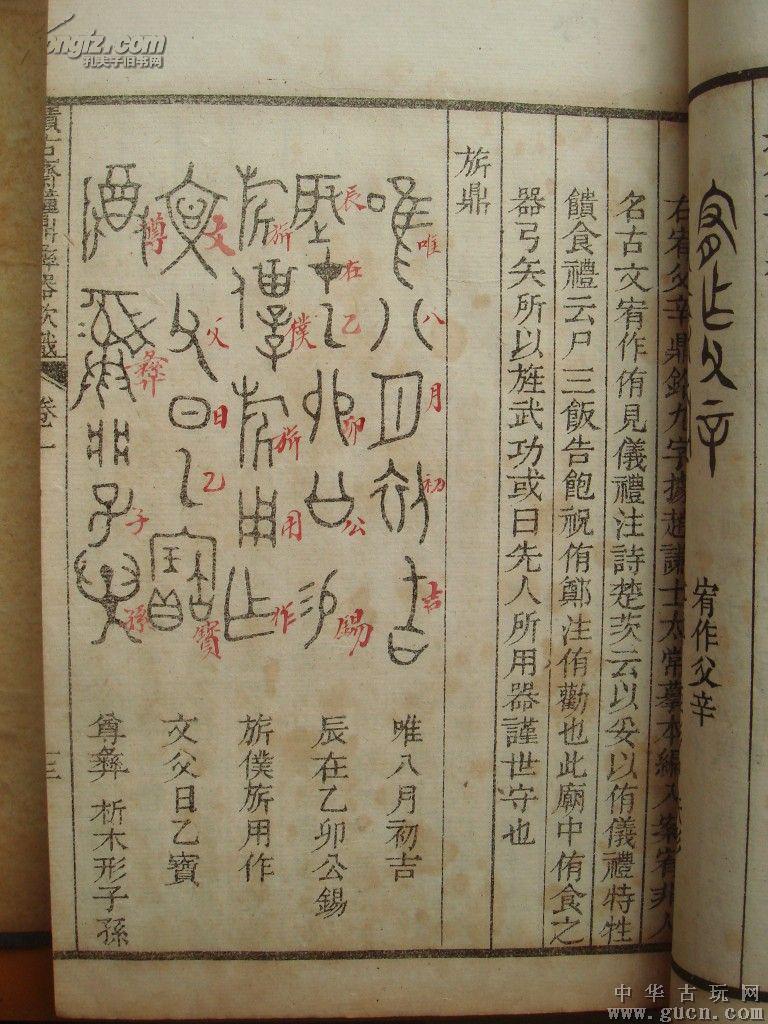 宥作父辛
右宥父辛鼎銘九字據趙謙士太常摹本編入案宥非人
名古文宥作侑見儀禮注詩楚茨云以妥以侑儀禮特牲
饋食禮云尸三飯告飽祝侑鄭注侑勸也此廟中侑食之
器弓矢所以旌武功或曰先人所用器謹世守也
旂鼎
唯八月初吉
辰在乙卯公錫
旂僕旂用作
文父日乙寶
尊彝 析木形子孫
唯八月初吉
辰在乙卯公錫
旂僕旂用作
文父日乙寶
尊彝 子孫
積古齋鐘鼎彝器款識 卷一
十三
孔夫子旧书网
中华古玩网
www.gucn.com